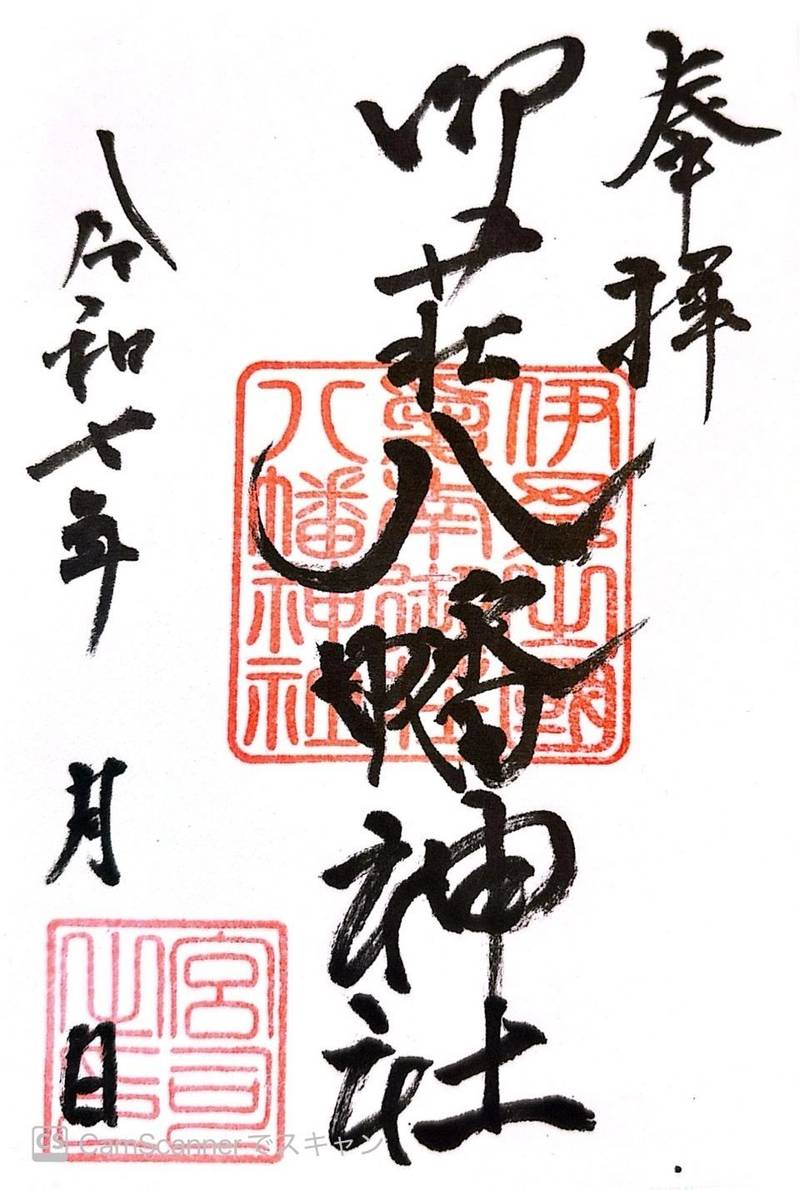 奉拝
御荘八幡神社
令和七年 月 日
伊予之国
愛南御荘
八幡神社
宮司
之印
CS CamScannerでスキャン